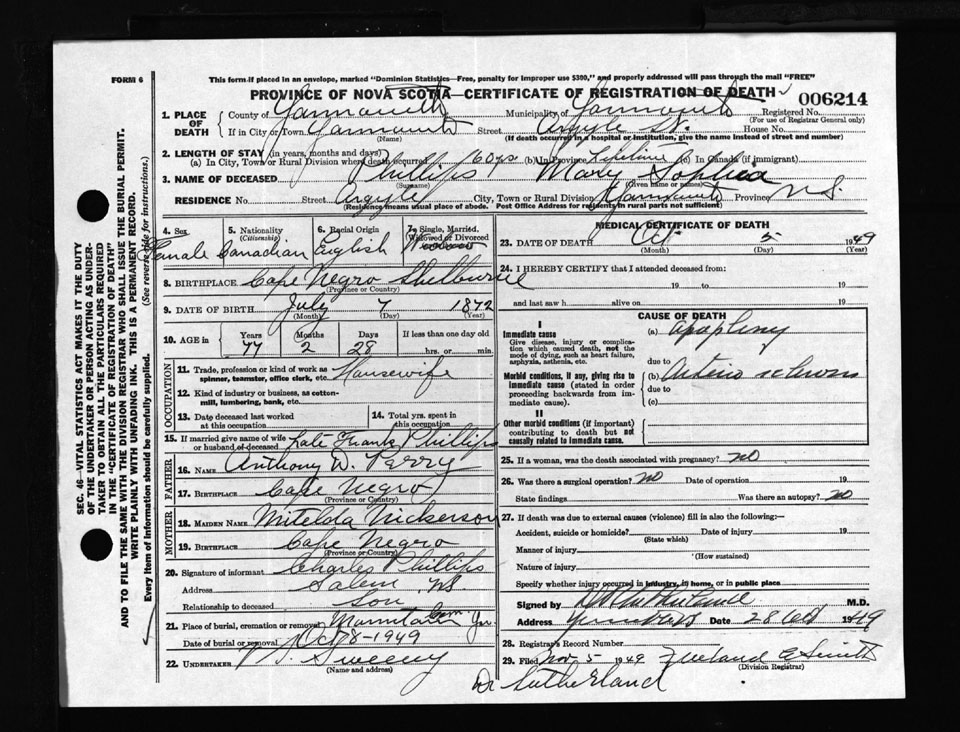 FORM 6
This form if placed in an envelope, marked "Dominion Statistics—Free, penalty for improper use $300," and properly addressed will pass through the mail "FREE"
PROVINCE OF NOVA SCOTIA—CERTIFICATE OF REGISTRATION OF DEATH
006214
1. PLACE OF DEATH
County of Yarmouth Municipality of Yarmouth Registered No.
(For use of Registrar General only)
If in City or Town Yarmouth Street Argyle St. House No.
(Name) (If death occurred in a hospital or institution, give the name instead of street and number)
2. LENGTH OF STAY (in years, months and days)
(a) In City, Town or Rural Division where death occurred 60 yrs (b) In Province Lifetime (c) In Canada (if immigrant)
3. NAME OF DECEASED Phillips Mary Sophia
(Surname) (Given name or names)
RESIDENCE No. Street Argyle City, Town or Rural Division Yarmouth Province N.S.
(Residence means usual place of abode. Post Office Address for residents in rural parts not sufficient)
4. Sex Female
5. Nationality (Citizenship) Canadian
6. Racial Origin English
7. Single, Married, Widowed or Divorced Widow
8. BIRTHPLACE Cape Negro Shelburne
(Province or Country)
9. DATE OF BIRTH July 7 1872
(Month) (Day) (Year)
10. AGE in Years Months Days If less than one day old
77 2 28 hrs. or min.
OCCUPATION
11. Trade, profession or kind of work as spinner, teamster, office clerk, etc. Housewife
12. Kind of industry or business, as cotton-mill, lumbering, bank, etc.
13. Date deceased last worked at this occupation
14. Total yrs. spent in this occupation
15. If married give name of wife or husband of deceased Late Frank Phillips
FATHER
16. NAME Anthony D. Perry
17. BIRTHPLACE Cape Negro
(Province or Country)
MOTHER
18. MAIDEN NAME Mitelda Nickerson
19. BIRTHPLACE Cape Negro
(Province or Country)
20. Signature of informant Charles Phillips
Address Salem NS
Relationship to deceased Son
21. Place of burial, cremation or removal Mountain Cem. Yar.
Date of burial or removal Oct 8-1949
22. UNDERTAKER Sweeny
(Name and address)
MEDICAL CERTIFICATE OF DEATH
23. DATE OF DEATH Oct 5 1949
(Month) (Day) (Year)
24. I HEREBY CERTIFY that I attended deceased from:
19 to 19
and last saw h alive on 19
CAUSE OF DEATH
I
Immediate cause (a) Apoplexy
Give disease, injury or complication which caused death, not the mode of dying, such as heart failure, asphyxia, asthenia, etc.
due to
Morbid conditions, if any, giving rise to immediate cause (stated in order proceeding backwards from immediate cause).
(b) Arterio sclerosis
due to
(c)
II
Other morbid conditions (if important) contributing to death but not causally related to immediate cause.
25. If a woman, was the death associated with pregnancy? no
26. Was there a surgical operation? no Date of operation 19
State findings Was there an autopsy? no
27. If death was due to external causes (violence) fill in also the following:—
Accident, suicide or homicide? Date of injury 19
(State which)
Manner of injury
(How sustained)
Nature of injury
Specify whether injury occurred in industry, in home, or in public place
Signed by Sutherland M.D.
Address Yarmouth Date 28 Oct 1949
28. Registrar's Record Number
29. Filed Nov 5 1949 E Smith
(Division Registrar)
Dr Sutherland
SEC. 46—VITAL STATISTICS ACT MAKES IT THE DUTY
OF THE UNDERTAKER OR PERSON ACTING AS UNDER-
TAKER TO OBTAIN ALL THE PARTICULARS REQUIRED
IN THE "CERTIFICATE OF REGISTRATION OF DEATH"
AND TO FILE THE SAME WITH THE DIVISION REGISTRAR WHO SHALL ISSUE THE BURIAL PERMIT.
WRITE PLAINLY WITH UNFADING INK. THIS IS A PERMANENT RECORD.
Every item of information should be carefully supplied. (See reverse side for instructions.)